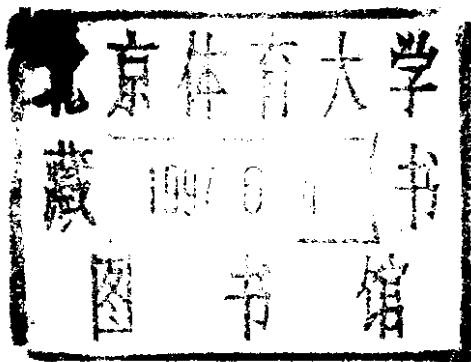 北京体育大学
藏书
图书馆